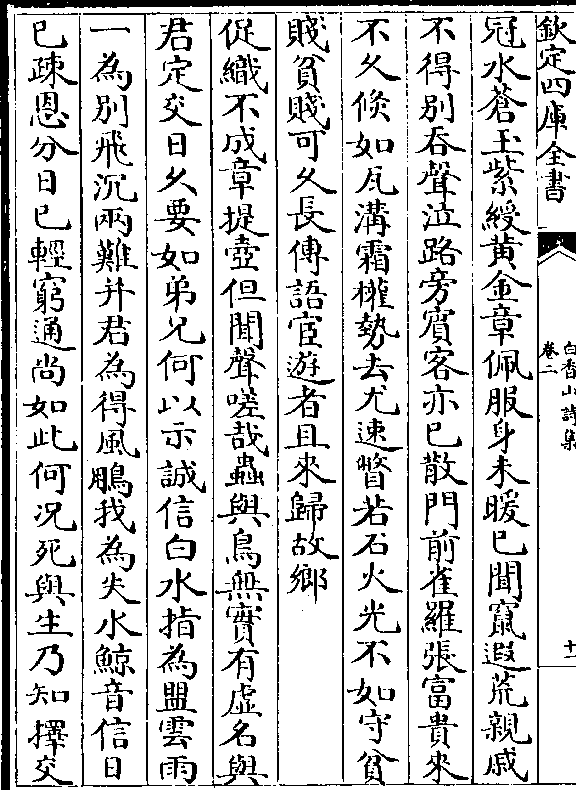 欽定四庫全書
白香山詩集
卷二
十一
冠水蒼玉紫綬黄金章佩服身未暖已聞竄遐荒親戚
不得别吞聲泣路旁賓客亦已散門前雀羅張富貴來
不久倐如瓦溝霜權勢去尤速瞥若石火光不如守貧
賤貧賤可久長傳語宦遊者且來歸故鄉
促織不成章提壺但聞聲嗟哉蟲與鳥無實有虚名與
君定交日久要如弟兄何以示誠信白水指為盟雲雨
一為别飛沉兩難并君為得風鵬我為失水鯨音信日
已疎恩分日已輕窮通尚如此何况死與生乃知擇交